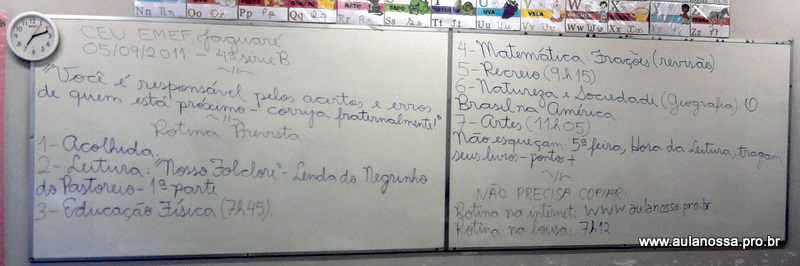 Nn Oo Pp Qq Rr Ss Tt Uu Vv Ww Xx Zz
RATO SAPO TATU UVA VELA
CEU EMEF Jaguaré
05/09/2011 - 4ª série B
"Você é responsável pelos acertos e erros
de quem está próximo - corrija fraternalmente!"
Rotina Prevista
1- Acolhida.
2- Leitura: "Nosso Folclore" - Lenda do Negrinho
do Pastoreio - 1ª parte
3- Educação Física (7h45).
4- Matemática Frações (revisão)
5- Recreio (9h15)
6- Natureza e Sociedade (Geografia)
Brasil na América
7- Artes (11h05)
Não esqueçam: 5ª feira, Hora da Leitura, tragam
seus livros - ponto +
NÃO PRECISA COPIAR:
Rotina na internet: www.aulanossa.pro.br
Rotina na lousa: 7h12
www.aulanossa.pro.br